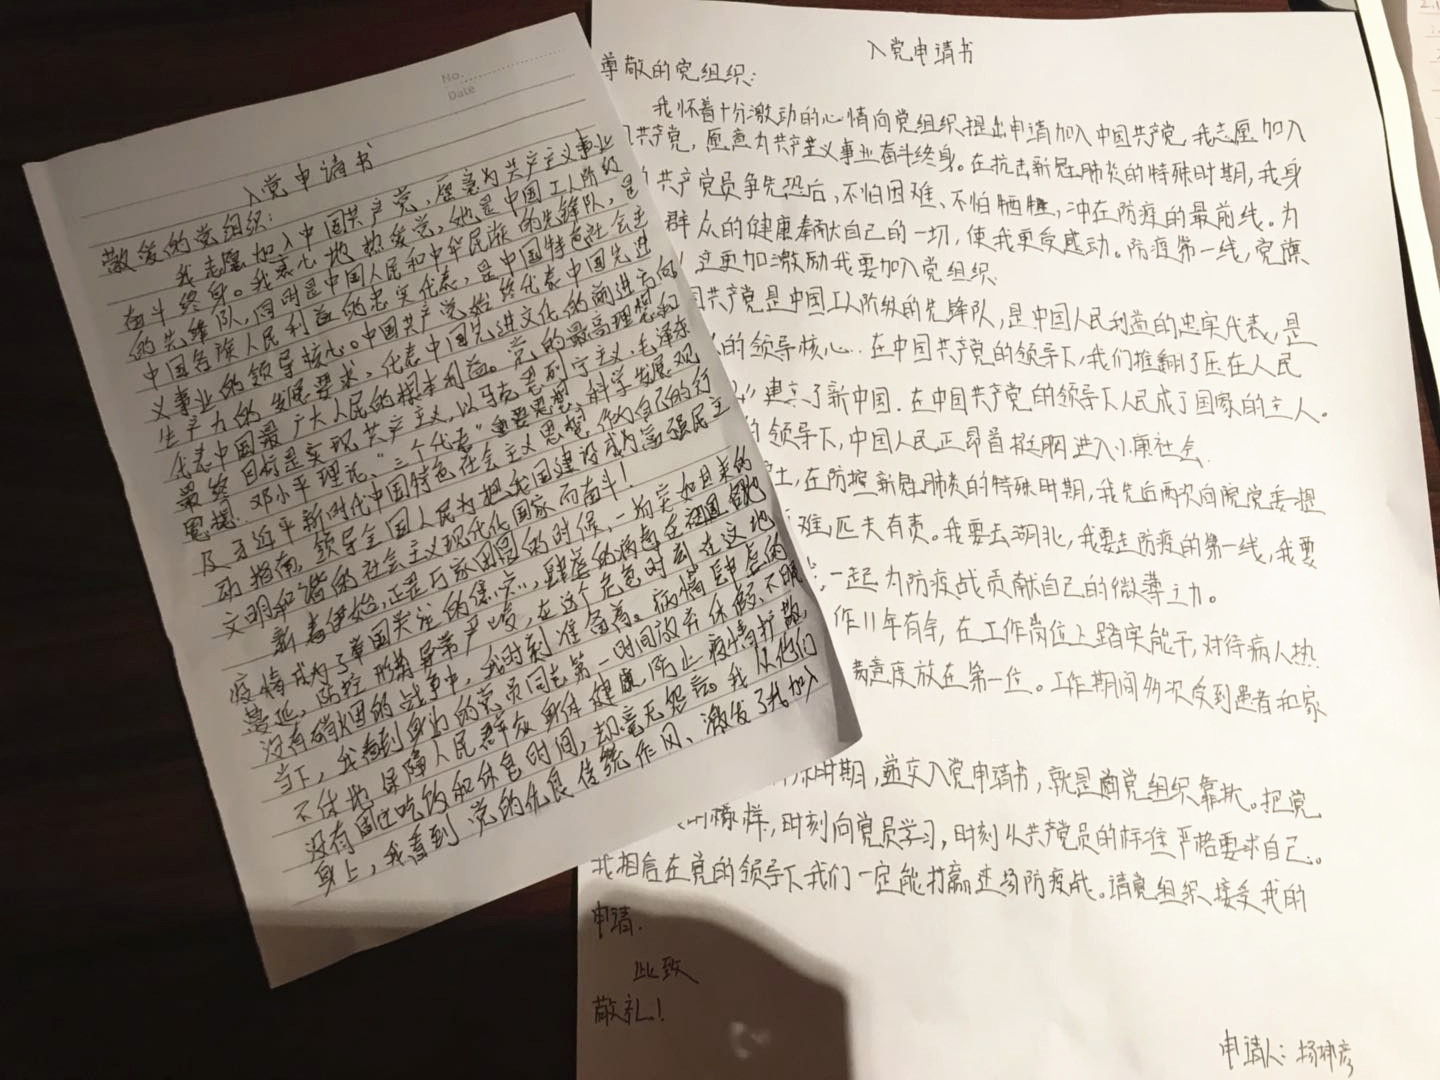 No.
Date
入党申请书
敬爱的党组织:
我志愿加入中国共产党，愿意为共产主义事业
奋斗终身。我衷心地热爱党，她是中国工人阶级
的先锋队，同时是中国人民和中华民族的先锋队，是
中国各族人民利益的忠实代表，是中国特色社会主
义事业的领导核心。中国共产党始终代表中国先进
生产力的发展要求，代表中国先进文化的前进方向
代表中国最广大人民的根本利益。党的最高理想和
最终目标是实现共产主义，以马克思列宁主义、毛泽东
思想、邓小平理论、"三个代表"重要思想、科学发展观
及习近平新时代中国特色社会主义思想作为自己的行
动指南，领导全国人民为把我国建设成为富强民主
文明和谐的社会主义现代化国家而奋斗!
新春伊始，正是万家团圆的时候，一场突如其来的
疫情成为了举国关注的焦点，肆虐的病毒在祖国各地
蔓延，防控形势异常严峻，在这个危急时刻在这场
没有硝烟的战争中，我时刻准备着。疫情
当下，我看到身边的党员同志第一时间放弃休假、不眠
不休地保障人民群众身体健康防止疫情扩散，
没有固定吃饭和休息时间，却毫无怨言。我从他们
身上，我看到党的优良传统作风、激发了我加入
入党申请书
尊敬的党组织:
我怀着十分激动的心情向党组织提出申请加入中国共产党，我志愿加入
共产党，愿意为共产主义事业奋斗终身。在抗击新冠肺炎的特殊时期，我身
共产党员争先恐后，不怕困难、不怕牺牲，冲在防疫的最前线。为
群众的健康奉献自己的一切，使我更受感动。防疫第一线，党旗
这更加激励我要加入党组织:
共产党是中国工人阶级的先锋队，是中国人民利益的忠实代表，是
的领导核心.在中国共产党的领导下，我们推翻了压在人民
建立了新中国.在中国共产党的领导下人民成了国家的主人。
的领导下，中国人民正昂首挺胸进入小康社会.
士，在防控新冠肺炎的特殊时期，我先后两次向院党委提
难，匹夫有责。我要去湖北，我要去防疫的第一线，我要
一起为防疫战贡献自己的微薄之力。
作11年有余，在工作岗位上踏实能干，对待病人热
满意度放在第一位。工作期间多次受到患者和家
时期，递交入党申请书，就是向党组织靠拢。把党
榜样，时刻向党员学习，时刻以共产党员的标准严格要求自己。
我相信在党的领导下我们一定能打赢这场防疫战。请党组织接受我的
申请.
此致
敬礼!
申请人:杨